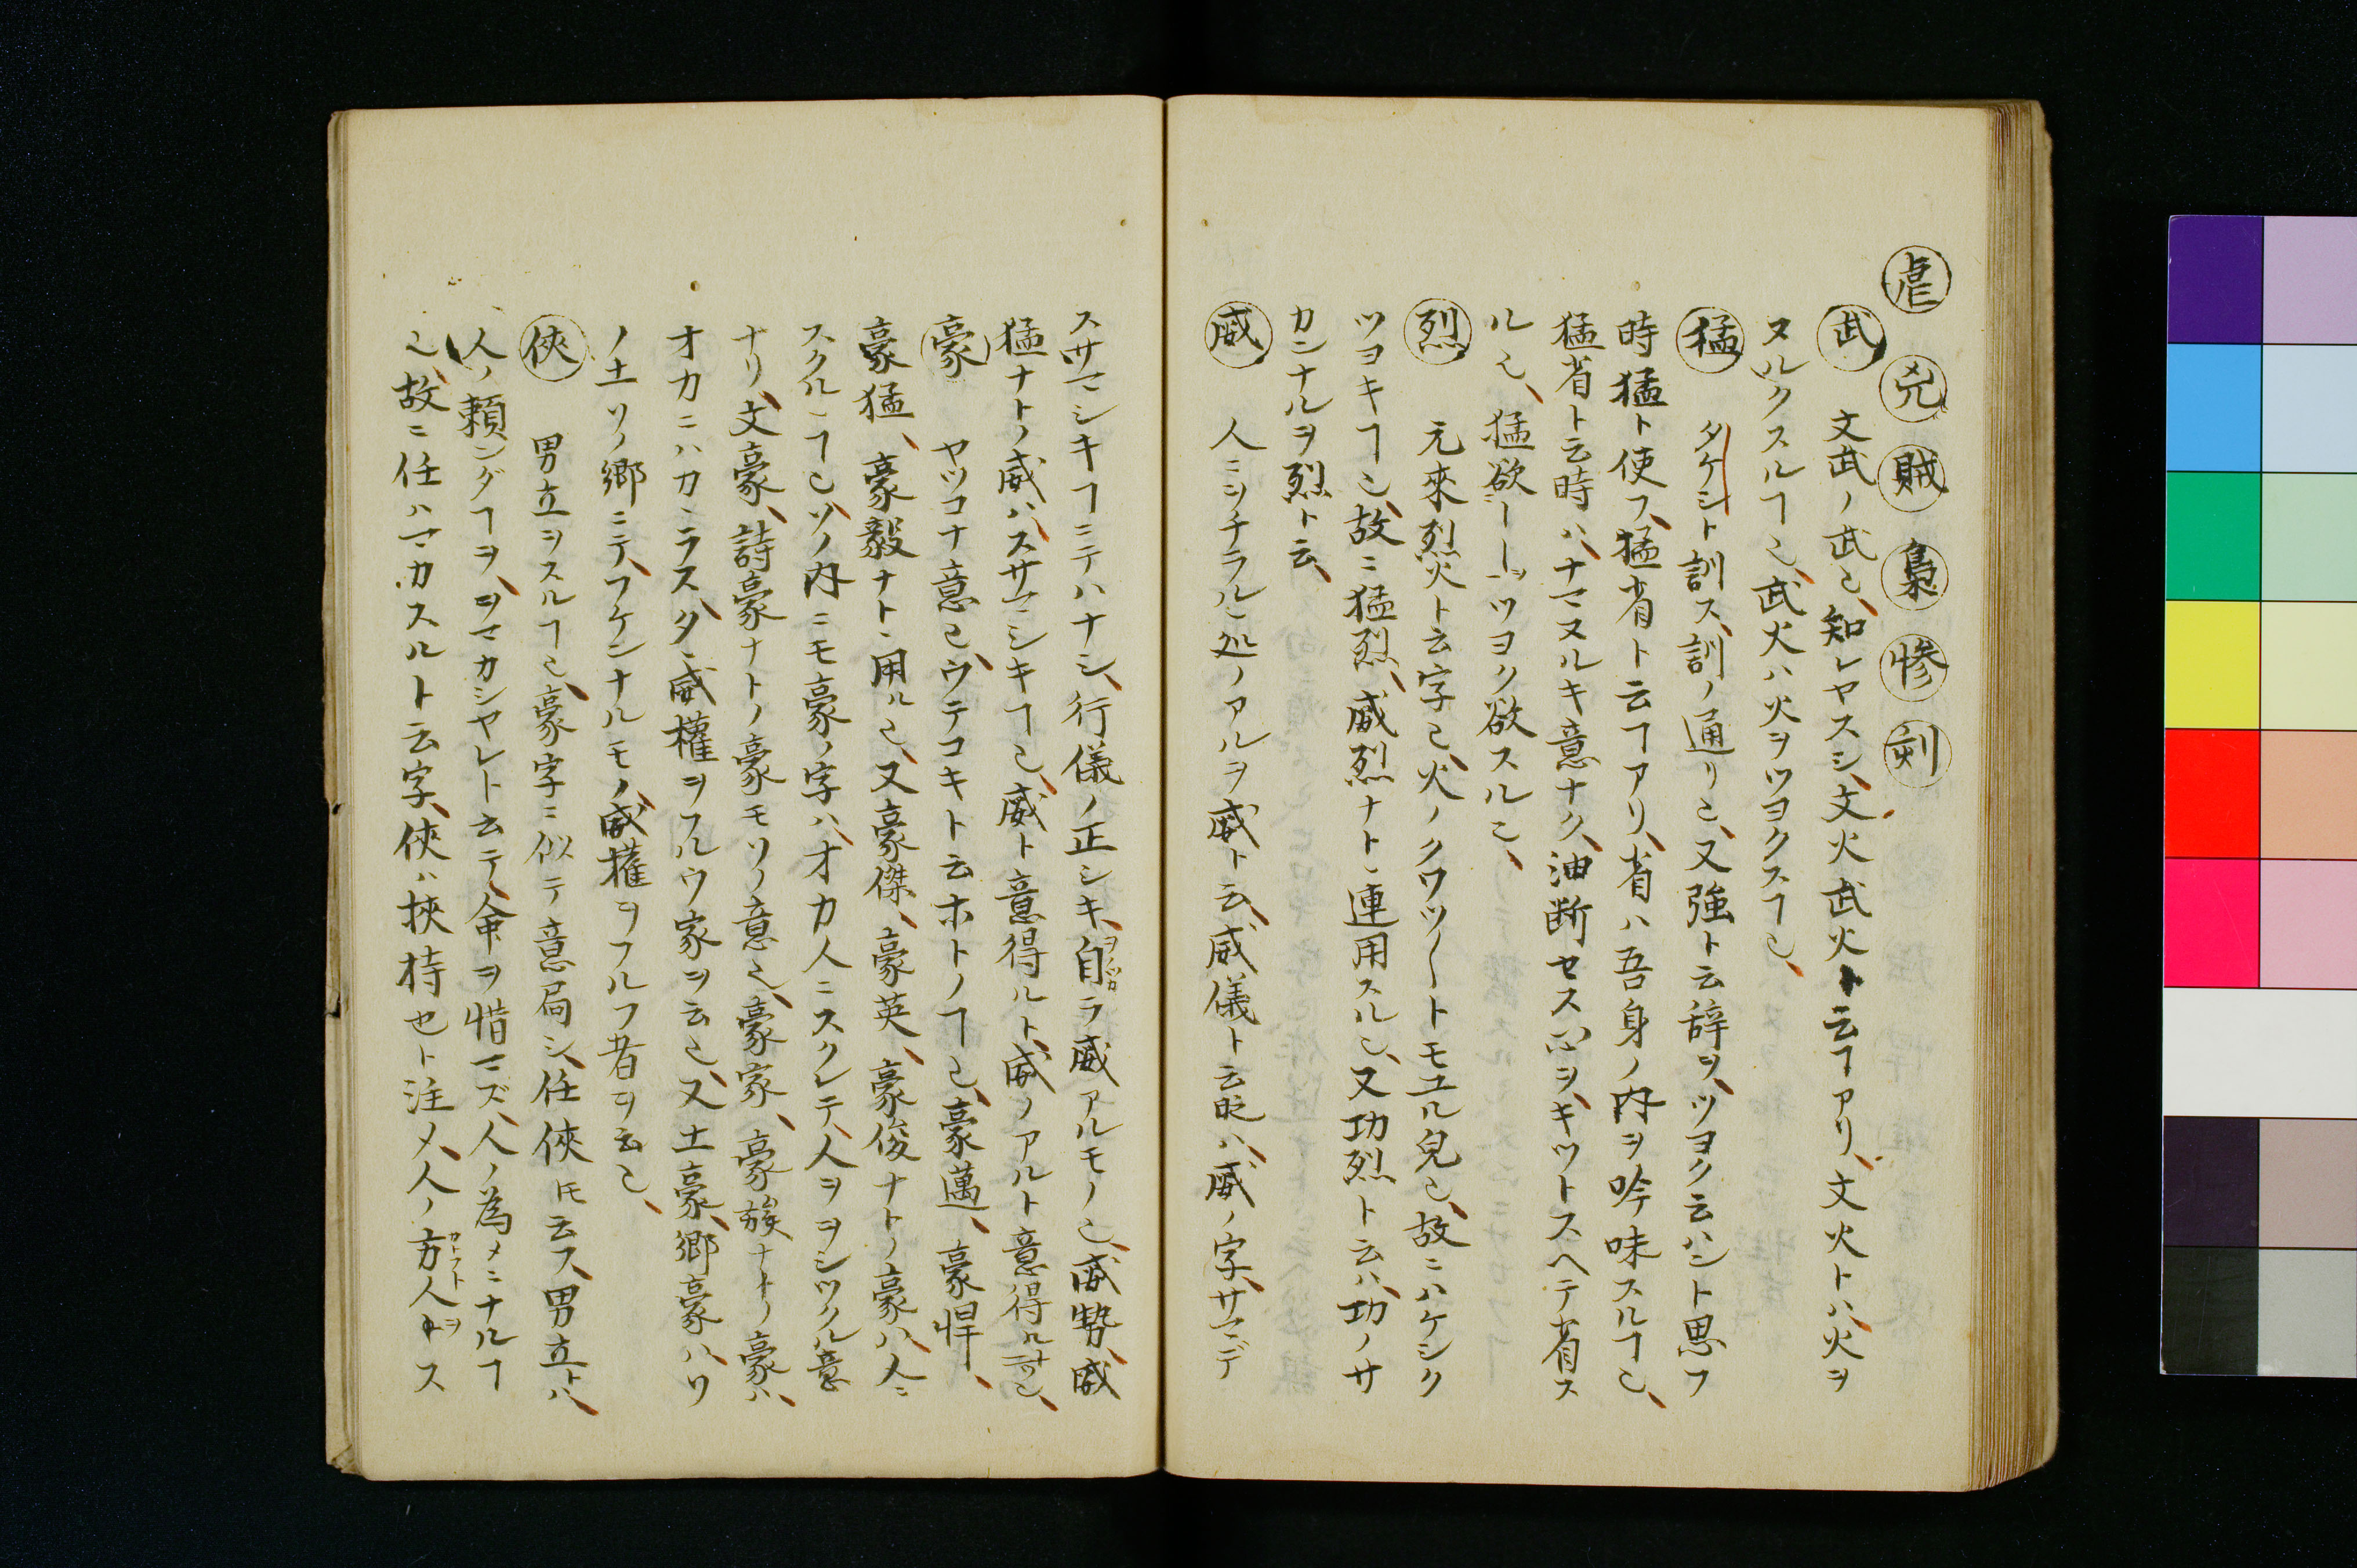 虐 兇 賊 梟 惨 刻
武 文武ノ武也、知レヤスシ、文火武火ト云ヿアリ、文火トハ、火ヲ
ヌルクスルヿ也、武火ハ火ヲツヨクスヿ也、
猛 タケシト訓ス、訓ノ通リ也、又強ト云辞ヲ、ツヨク云ハント思フ
時猛ト使フ、猛省ト云ヿアリ、省ハ吾身ノ内ヲ吟味スルヿ也、
猛省ト云時ハ、ナマヌルキ意ナク、油断セス心ヲ、キツトスヘテ省ス
ル也、猛欲ニーーヲツヨク欲スル也、
烈 元來烈火ト云字也、火ノクワツ〱トモユル皃也、故ニハケシク
ツヨキヿ也、故ニ猛烈、威烈ナトヽ連用スル也、又功烈ト云ハ、功ノサ
カンナルヲ烈ト云、
威 人ニヲチラルヽ処ノアルヲ威ト云、威儀ト云時ハ、威ノ字、サマデ
スサマシキヿニテハナシ、行儀ノ正シキ、自ヲノツカラ威アルモノ也、威勢、威
猛ナトノ威ハ、スサマシキヿ也、威ト意得ルト、威ノアルト意得ル可也、
豪 ヤツコナ意也、ウテコキト云ホトノヿ也、豪邁、豪悍、
豪猛、豪毅ナトヽ用ル也、又豪傑、豪英、豪俊ナトノ豪ハ、人ニ
スクルヽヿ也、ソノ内ニモ豪ノ字ハ、オカ人ニスクレテ、人ヲヲシツクル意
ナリ、文豪、詩豪ナトノ豪モソノ意也、豪家、豪族ナトノ豪ハ、
オカニハカヽラス、タヽ威權ヲフルウ家ヲ云也、又土豪、郷豪ハ、ソ
ノ土ソノ郷ニテ、フケンナルモノ、威權ヲフルフ者ヲ云也、
俠 男立ヲスルヿ也、豪字ニ似テ意局シ、任俠トモ云ス、男立トハ、
人ノ頼ンダヿヲ、ヲマカシヤレト云テ、命ヲ惜マズ、人ノ為メニナルヿ
也、故ニ任ハマカスルト云字、俠ハ挾持也ト注メ、人ノ方人カトフトヲス